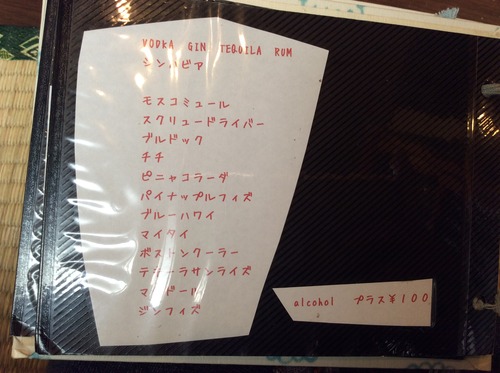 VODKA GIN TEQUILA RUM
モスコミュール
スクリュードライバー
ブルドック
チチ
ピニャコラーダ
パイナップルフィズ
ブルーハワイ
マイタイ
ボストンクーラー
テキーラサンライズ
ジンフィズ
alcohol プラス¥100